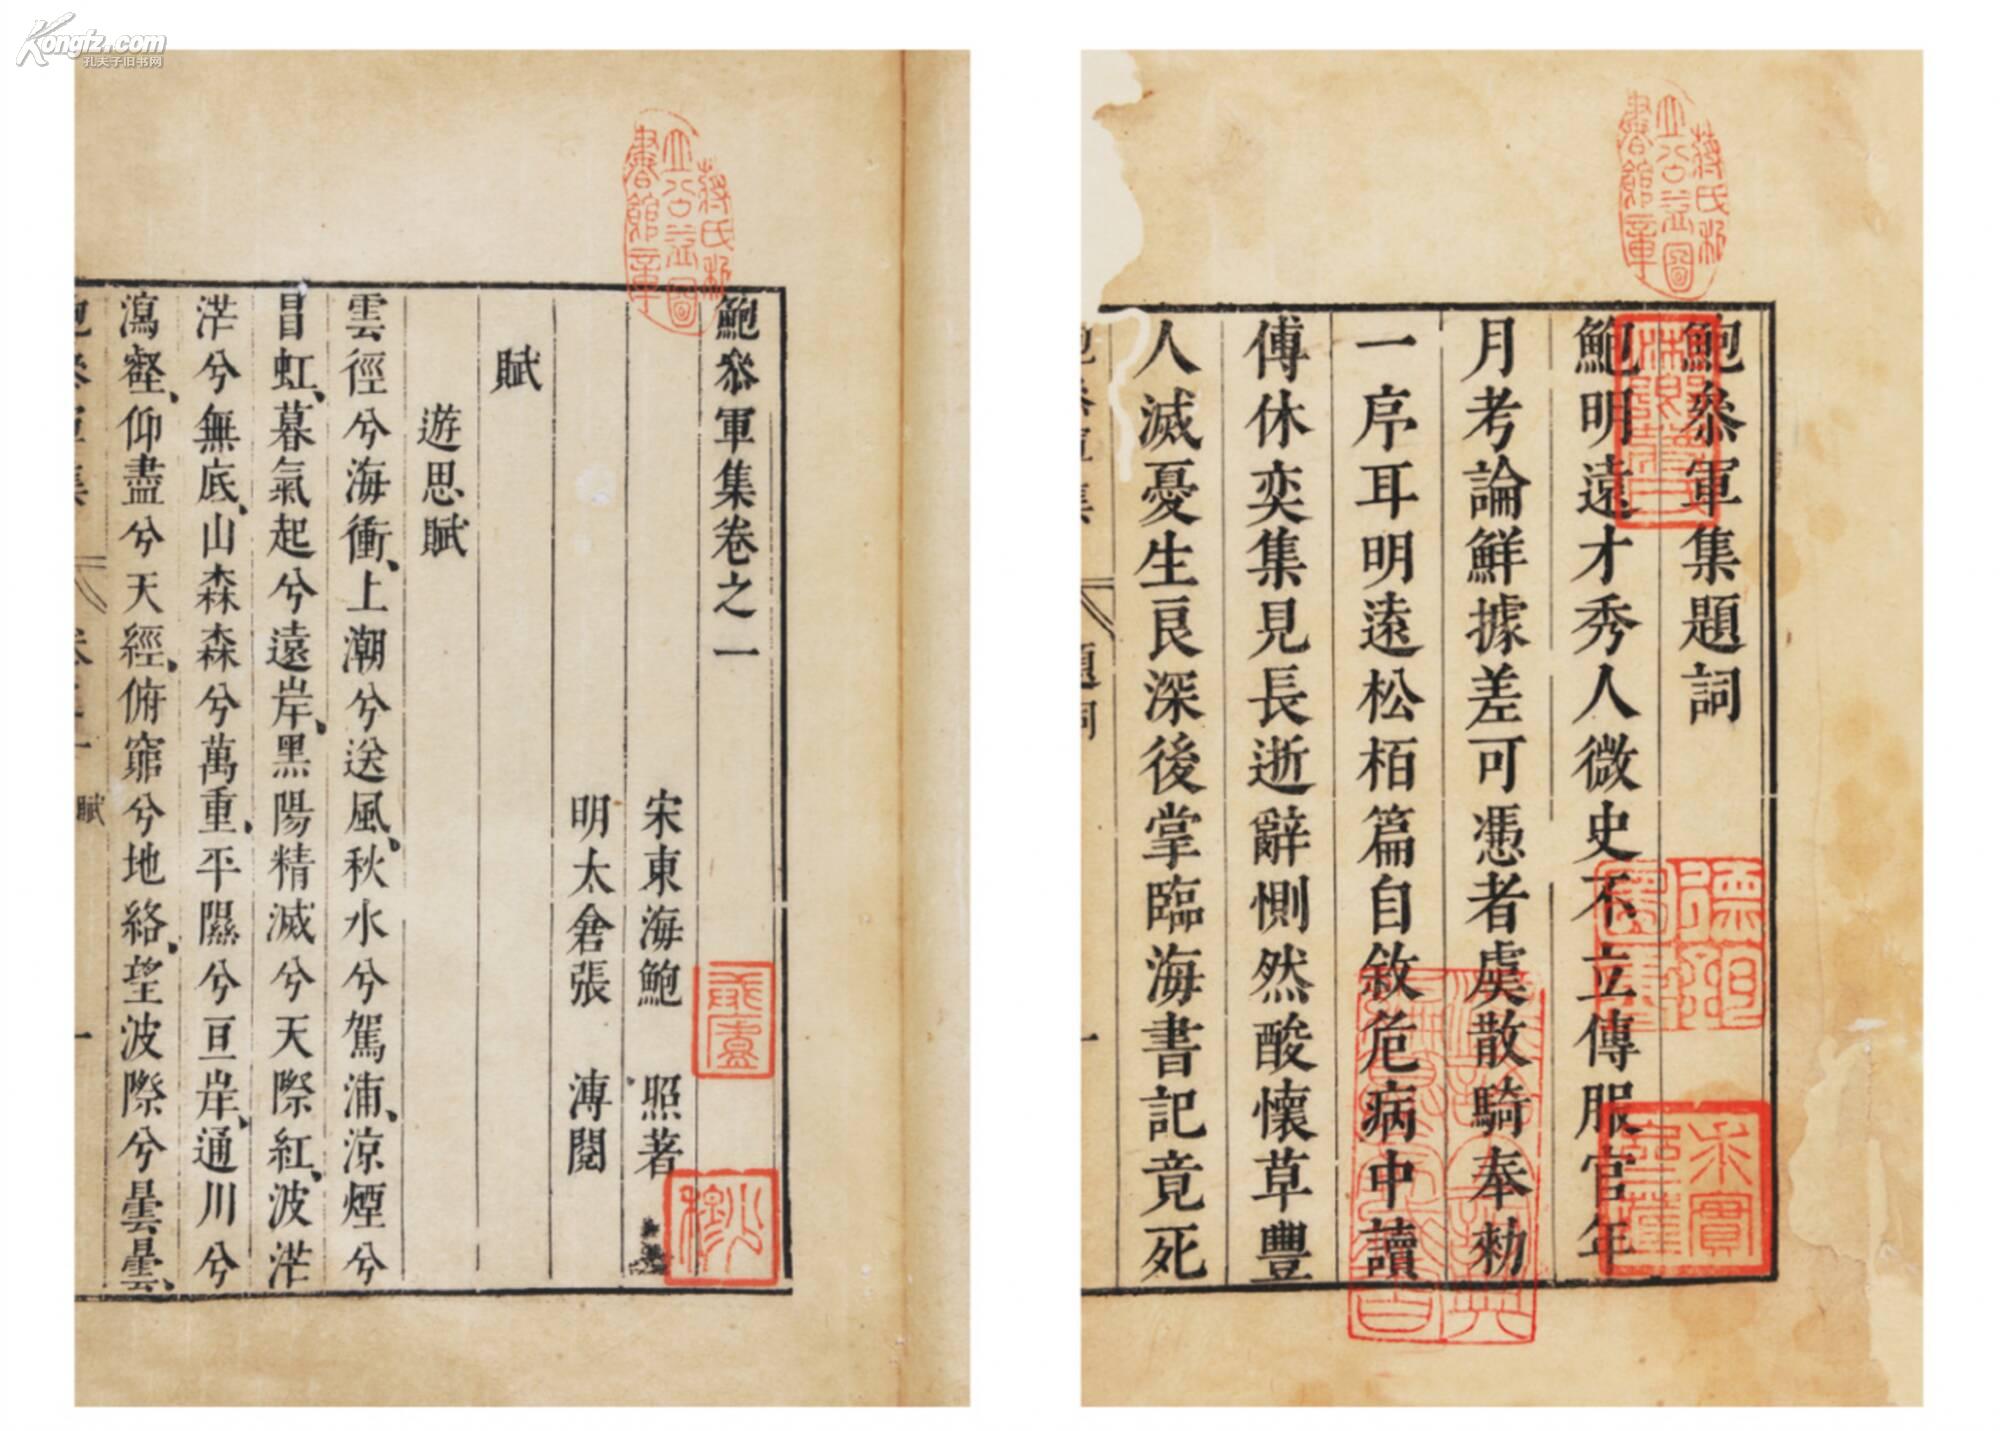 Kongfz.com
孔夫子旧书网
鮑叅軍集題詞
鮑明遠才秀人微史不立傳服官年
月考論鮮據差可憑者虞散騎奉勑
一序耳明遠松栢篇自敘危病中讀
傅休奕集見長逝辭惻然酸懷草豐
人滅憂生良深後掌臨海書記竟死
題詞
一
蔣氏私
立公益圖
書館章
禾實
鮑叅軍集卷之一
宋東海鮑　照著
明太倉張　溥閱
賦
遊思賦
雲徑兮海衝、上潮兮送風、秋水兮駕浦、涼煙兮
冒虹、暮氣起兮遠岸、黑陽精滅兮天際紅、波茫
茫兮無底、山森森兮萬重、平隰兮亘岸、通川兮
瀉壑、仰盡兮天經、俯窮兮地絡、望波際兮曇曇、
鮑叅軍集
卷之一
賦
一
蔣氏私
立公益圖
書館章